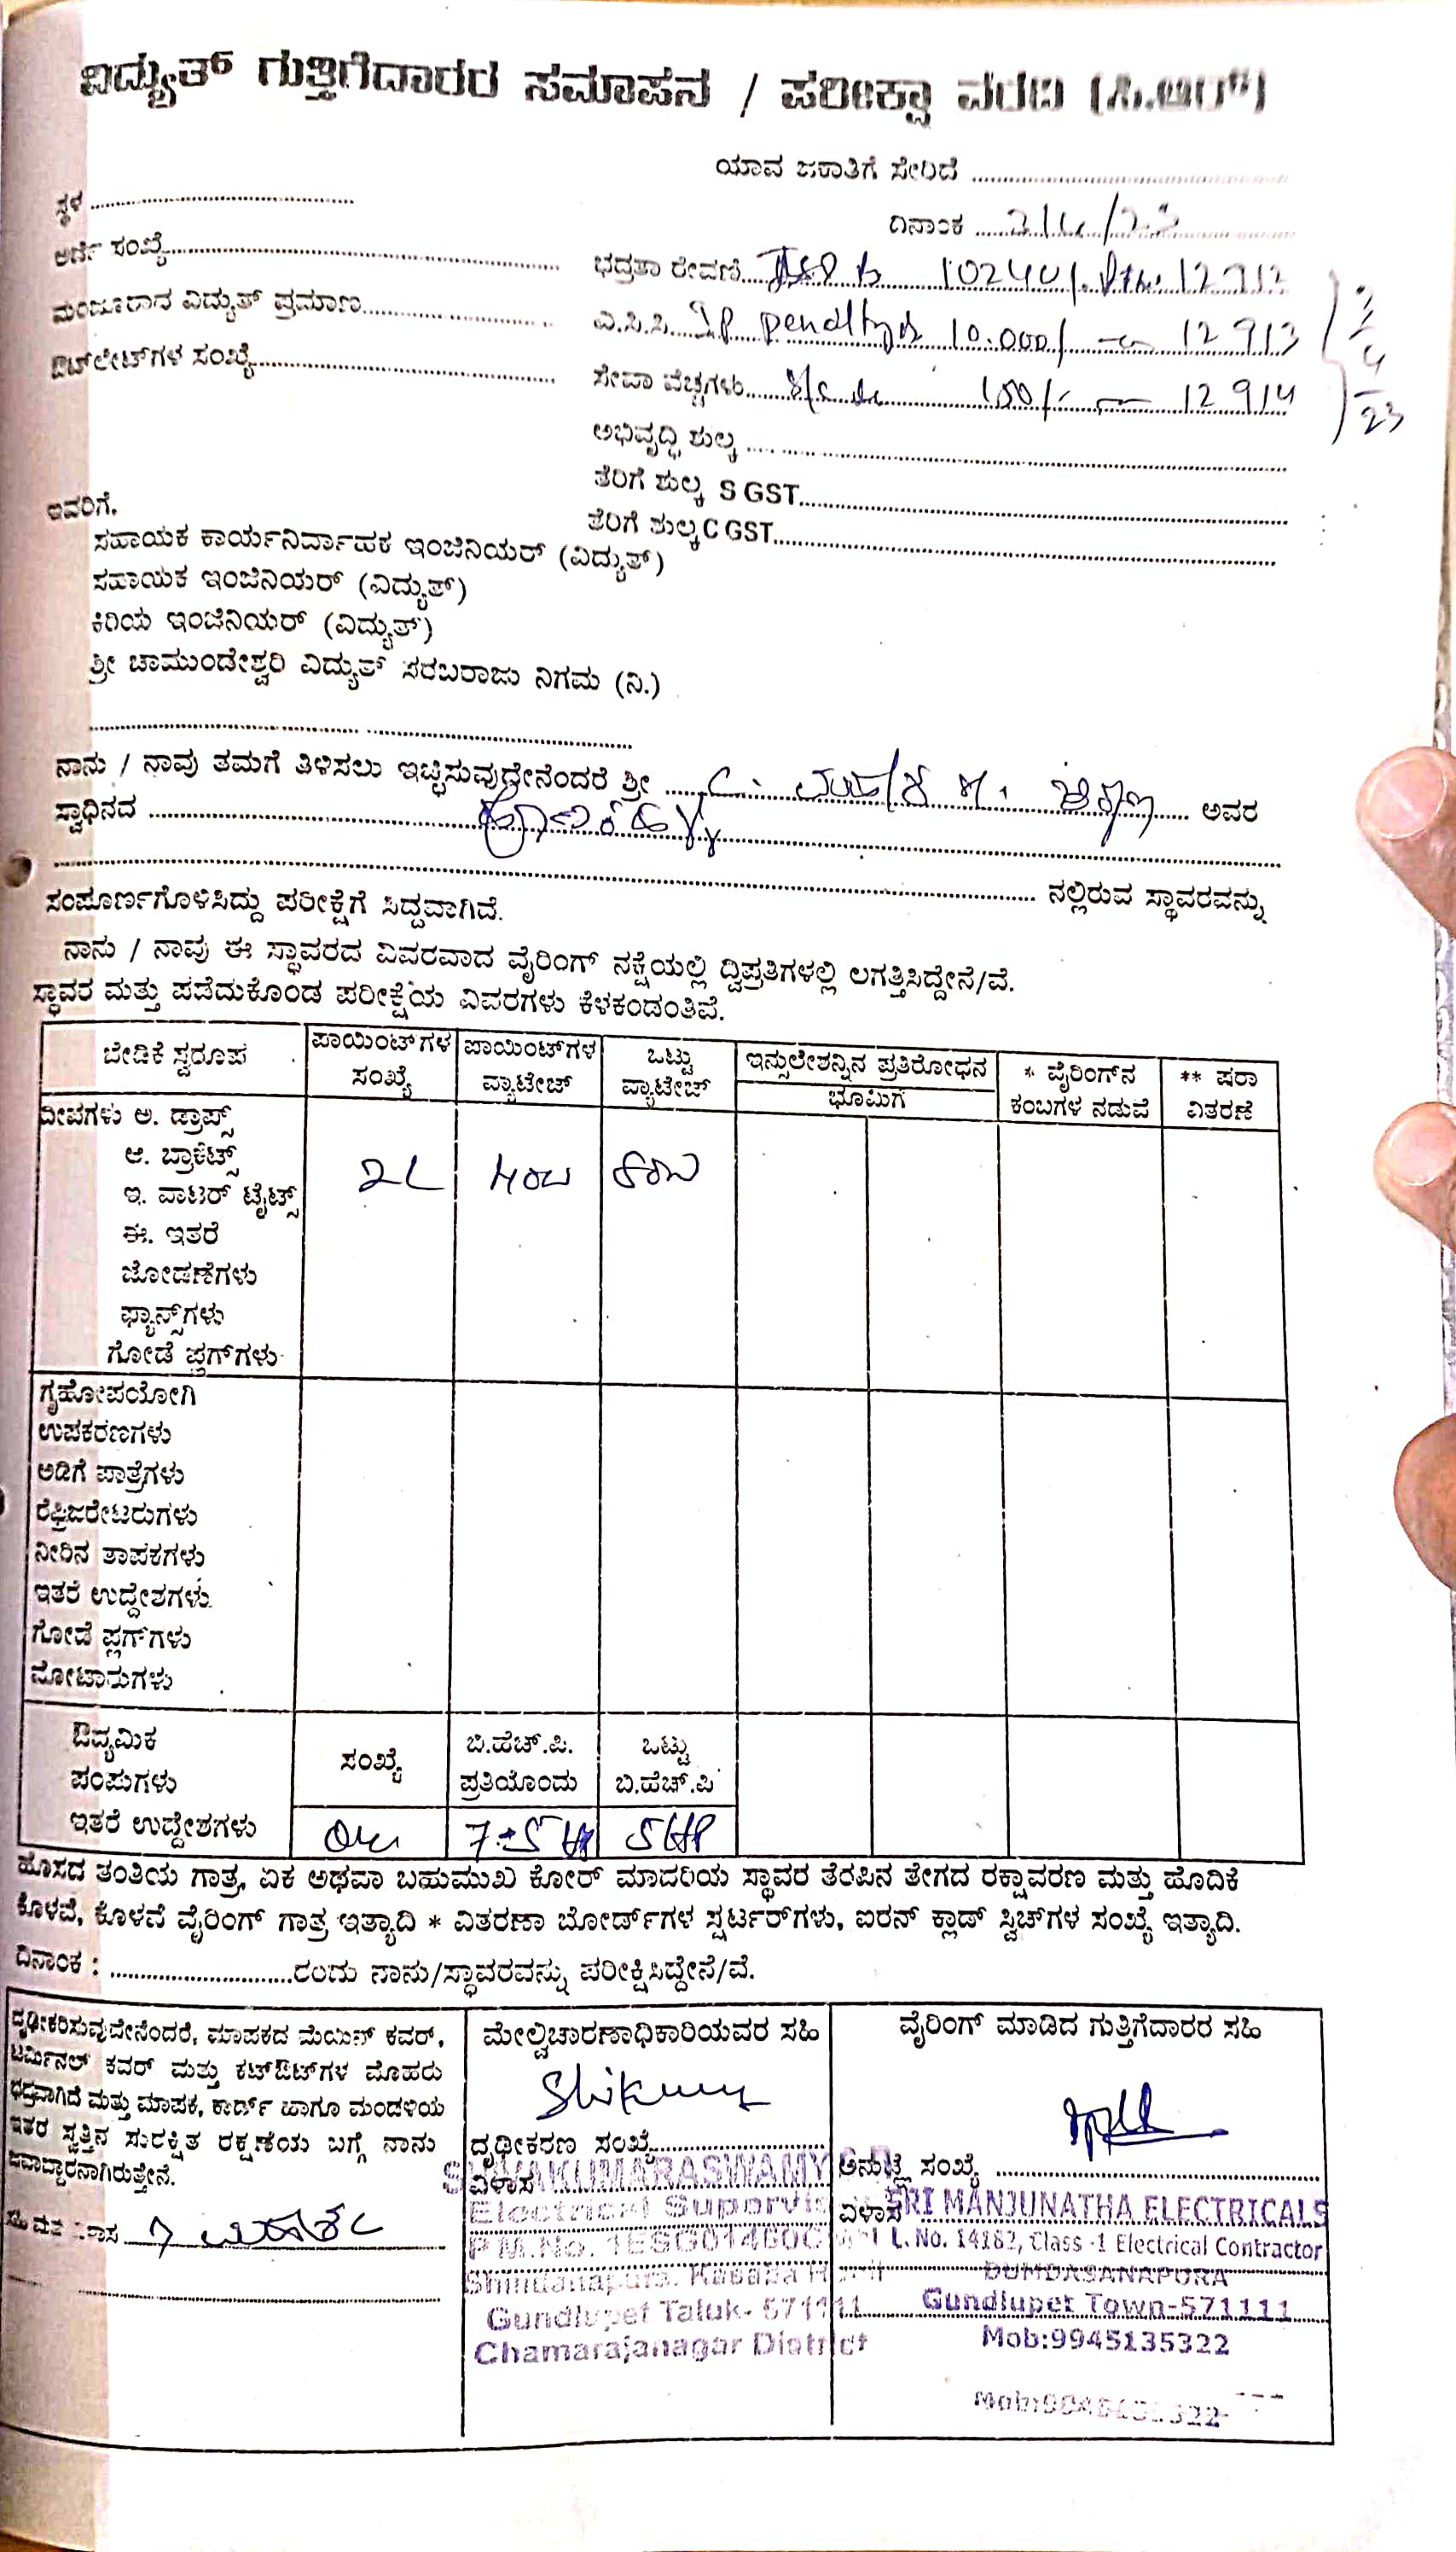 ವಿದ್ಯುತ್ ಗುತ್ತಿಗೆದಾರರ ಸಮಾಪನ / ಪರೀಕ್ಷಾ ವರದಿ (ಸಿ.ಆರ್)
ಯಾವ ಜಕಾತಿಗೆ ಸೇರಿದೆ
ಸ್ಥಳ
ದಿನಾಂಕ
ಅರ್ಜಿ ಸಂಖ್ಯೆ
ಭದ್ರತಾ ಠೇವಣಿ 10240/- 12912
ಮಂಜೂರಾದ ವಿದ್ಯುತ್ ಪ್ರಮಾಣ
ಎ.ಸಿ.ಸಿ. IP penalty 10.000/- 12913
ಔಟ್‌ಲೇಟ್‌ಗಳ ಸಂಖ್ಯೆ
ಸೇವಾ ವೆಚ್ಚಗಳು 12914
23
ಅಭಿವೃದ್ಧಿ ಶುಲ್ಕ
ತೆರಿಗೆ ಶುಲ್ಕ S GST
ತೆರಿಗೆ ಶುಲ್ಕ C GST
ಇವರಿಗೆ,
ಸಹಾಯಕ ಕಾರ್ಯನಿರ್ವಾಹಕ ಇಂಜಿನಿಯರ್ (ವಿದ್ಯುತ್)
ಸಹಾಯಕ ಇಂಜಿನಿಯರ್ (ವಿದ್ಯುತ್)
ಕಿರಿಯ ಇಂಜಿನಿಯರ್ (ವಿದ್ಯುತ್)
ಶ್ರೀ ಚಾಮುಂಡೇಶ್ವರಿ ವಿದ್ಯುತ್ ಸರಬರಾಜು ನಿಗಮ (ನಿ.)
ನಾನು / ನಾವು ತಮಗೆ ತಿಳಿಸಲು ಇಚ್ಛಿಸುವುದೇನೆಂದರೆ ಶ್ರೀ ಅವರ
ಸ್ವಾಧಿನದ
ನಲ್ಲಿರುವ ಸ್ಥಾವರವನ್ನು
ಸಂಪೂರ್ಣಗೊಳಿಸಿದ್ದು ಪರೀಕ್ಷೆಗೆ ಸಿದ್ಧವಾಗಿದೆ.
ನಾನು / ನಾವು ಈ ಸ್ಥಾವರದ ವಿವರವಾದ ವೈರಿಂಗ್ ನಕ್ಷೆಯಲ್ಲಿ ದ್ವಿಪ್ರತಿಗಳಲ್ಲಿ ಲಗತ್ತಿಸಿದ್ದೇನೆ/ವೆ.
ಸ್ಥಾವರ ಮತ್ತು ಪಡೆದುಕೊಂಡ ಪರೀಕ್ಷೆಯ ವಿವರಗಳು ಕೆಳಕಂಡಂತಿವೆ.
ಬೇಡಿಕೆ ಸ್ವರೂಪ
ಪಾಯಿಂಟ್‌ಗಳ ಸಂಖ್ಯೆ
ಪಾಯಿಂಟ್‌ಗಳ ವ್ಯಾಟೇಜ್
ಒಟ್ಟು ವ್ಯಾಟೇಜ್
ಇನ್ಸುಲೇಶನ್ನಿನ ಪ್ರತಿರೋಧನ
ಭೂಮಿಗೆ
* ವೈರಿಂಗ್‌ನ ಕಂಬಗಳ ನಡುವೆ
** ಷರಾ ವಿತರಣೆ
ದೀಪಗಳು ಅ. ಡ್ರಾಪ್ಸ್
ಆ. ಬ್ರಾಕೆಟ್ಸ್
ಇ. ವಾಟರ್ ಟೈಟ್ಸ್ 2L 40w 80w
ಈ. ಇತರೆ
ಜೋಡಣೆಗಳು
ಫ್ಯಾನ್ಸ್‌ಗಳು
ಗೋಡೆ ಪ್ಲಗ್‌ಗಳು
ಗೃಹೋಪಯೋಗಿ
ಉಪಕರಣಗಳು
ಅಡಿಗೆ ಪಾತ್ರೆಗಳು
ರೆಫ್ರಿಜರೇಟರುಗಳು
ನೀರಿನ ತಾಪಕಗಳು
ಇತರೆ ಉದ್ದೇಶಗಳು
ಗೋಡೆ ಪ್ಲಗ್‌ಗಳು
ಮೋಟಾರುಗಳು
ಔದ್ಯಮಿಕ
ಪಂಪುಗಳು
ಇತರೆ ಉದ್ದೇಶಗಳು
ಸಂಖ್ಯೆ
ಬಿ.ಹೆಚ್.ಪಿ. ಪ್ರತಿಯೊಂದು
ಒಟ್ಟು ಬಿ.ಹೆಚ್.ಪಿ
5HP
ಹೊಸದ ತಂತಿಯ ಗಾತ್ರ, ಏಕ ಅಥವಾ ಬಹುಮುಖ ಕೋರ್ ಮಾದರಿಯ ಸ್ಥಾವರ ತೆರಪಿನ ತೇಗದ ರಕ್ಷಾವರಣ ಮತ್ತು ಹೊದಿಕೆ
ಕೊಳವೆ, ಕೊಳವೆ ವೈರಿಂಗ್ ಗಾತ್ರ ಇತ್ಯಾದಿ * ವಿತರಣಾ ಬೋರ್ಡ್‌ಗಳ ಸ್ಟರ್ಟರ್‌ಗಳು, ಐರನ್ ಕ್ಲಾಡ್ ಸ್ವಿಚ್‌ಗಳ ಸಂಖ್ಯೆ ಇತ್ಯಾದಿ.
ದಿನಾಂಕ : ರಂದು ನಾನು/ಸ್ಥಾವರವನ್ನು ಪರೀಕ್ಷಿಸಿದ್ದೇನೆ/ವೆ.
ದೃಢೀಕರಿಸುವುದೇನೆಂದರೆ, ಮಾಪಕದ ಮೆಯಿನ್ ಕವರ್,
ಟರ್ಮಿನಲ್ ಕವರ್ ಮತ್ತು ಕಟ್‌ಔಟ್‌ಗಳ ಮೊಹರು
ಭದ್ರವಾಗಿದೆ ಮತ್ತು ಮಾಪಕ, ಕಾರ್ಡ್ ಹಾಗೂ ಮಂಡಳಿಯ
ಇತರ ಸ್ವತ್ತಿನ ಸುರಕ್ಷಿತ ರಕ್ಷಣೆಯ ಬಗ್ಗೆ ನಾನು
ಜವಾಬ್ದಾರನಾಗಿರುತ್ತೇನೆ.
ಮೇಲ್ವಿಚಾರಣಾಧಿಕಾರಿಯವರ ಸಹಿ
ದೃಢೀಕರಣ ಸಂಖ್ಯೆ
ವಿಳಾಸ
SHIVAKUMARASWAMY
Electrical Supervis
Gundlupet Taluk- 571111
Chamarajanagar District
ವೈರಿಂಗ್ ಮಾಡಿದ ಗುತ್ತಿಗೆದಾರರ ಸಹಿ
ಅನುಜ್ಞೆ ಸಂಖ್ಯೆ
ವಿಳಾಸ SRI MANJUNATHA ELECTRICALS
L. No. 14182, Class -1 Electrical Contractor
DUMDASANAPURA
Gundlupet Town-571111
Mob:9945135322